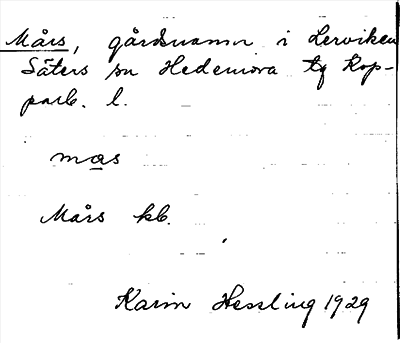 Mårs, gårdsnamn i Lerviken
Säters sn Hedemora tg Kop-
parb. l.
mas
Mårs kb.
Karin Hessling 1929